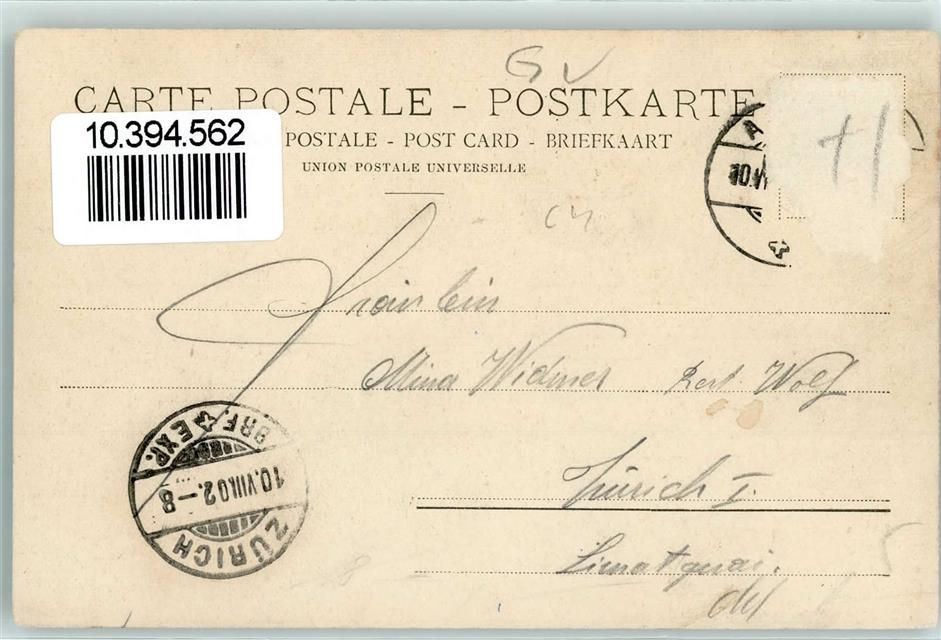 G V
CARTE POSTALE - POSTKARTE
10.394.562
POSTALE - POST CARD - BRIEFKAART
UNION POSTALE UNIVERSELLE
+1
10.VI
Fräulein
Mina Widmer Rest Wolf
Zürich I.
Limatquai.
BRF. EXP.
10.VIII.02.-8
ZÜRICH